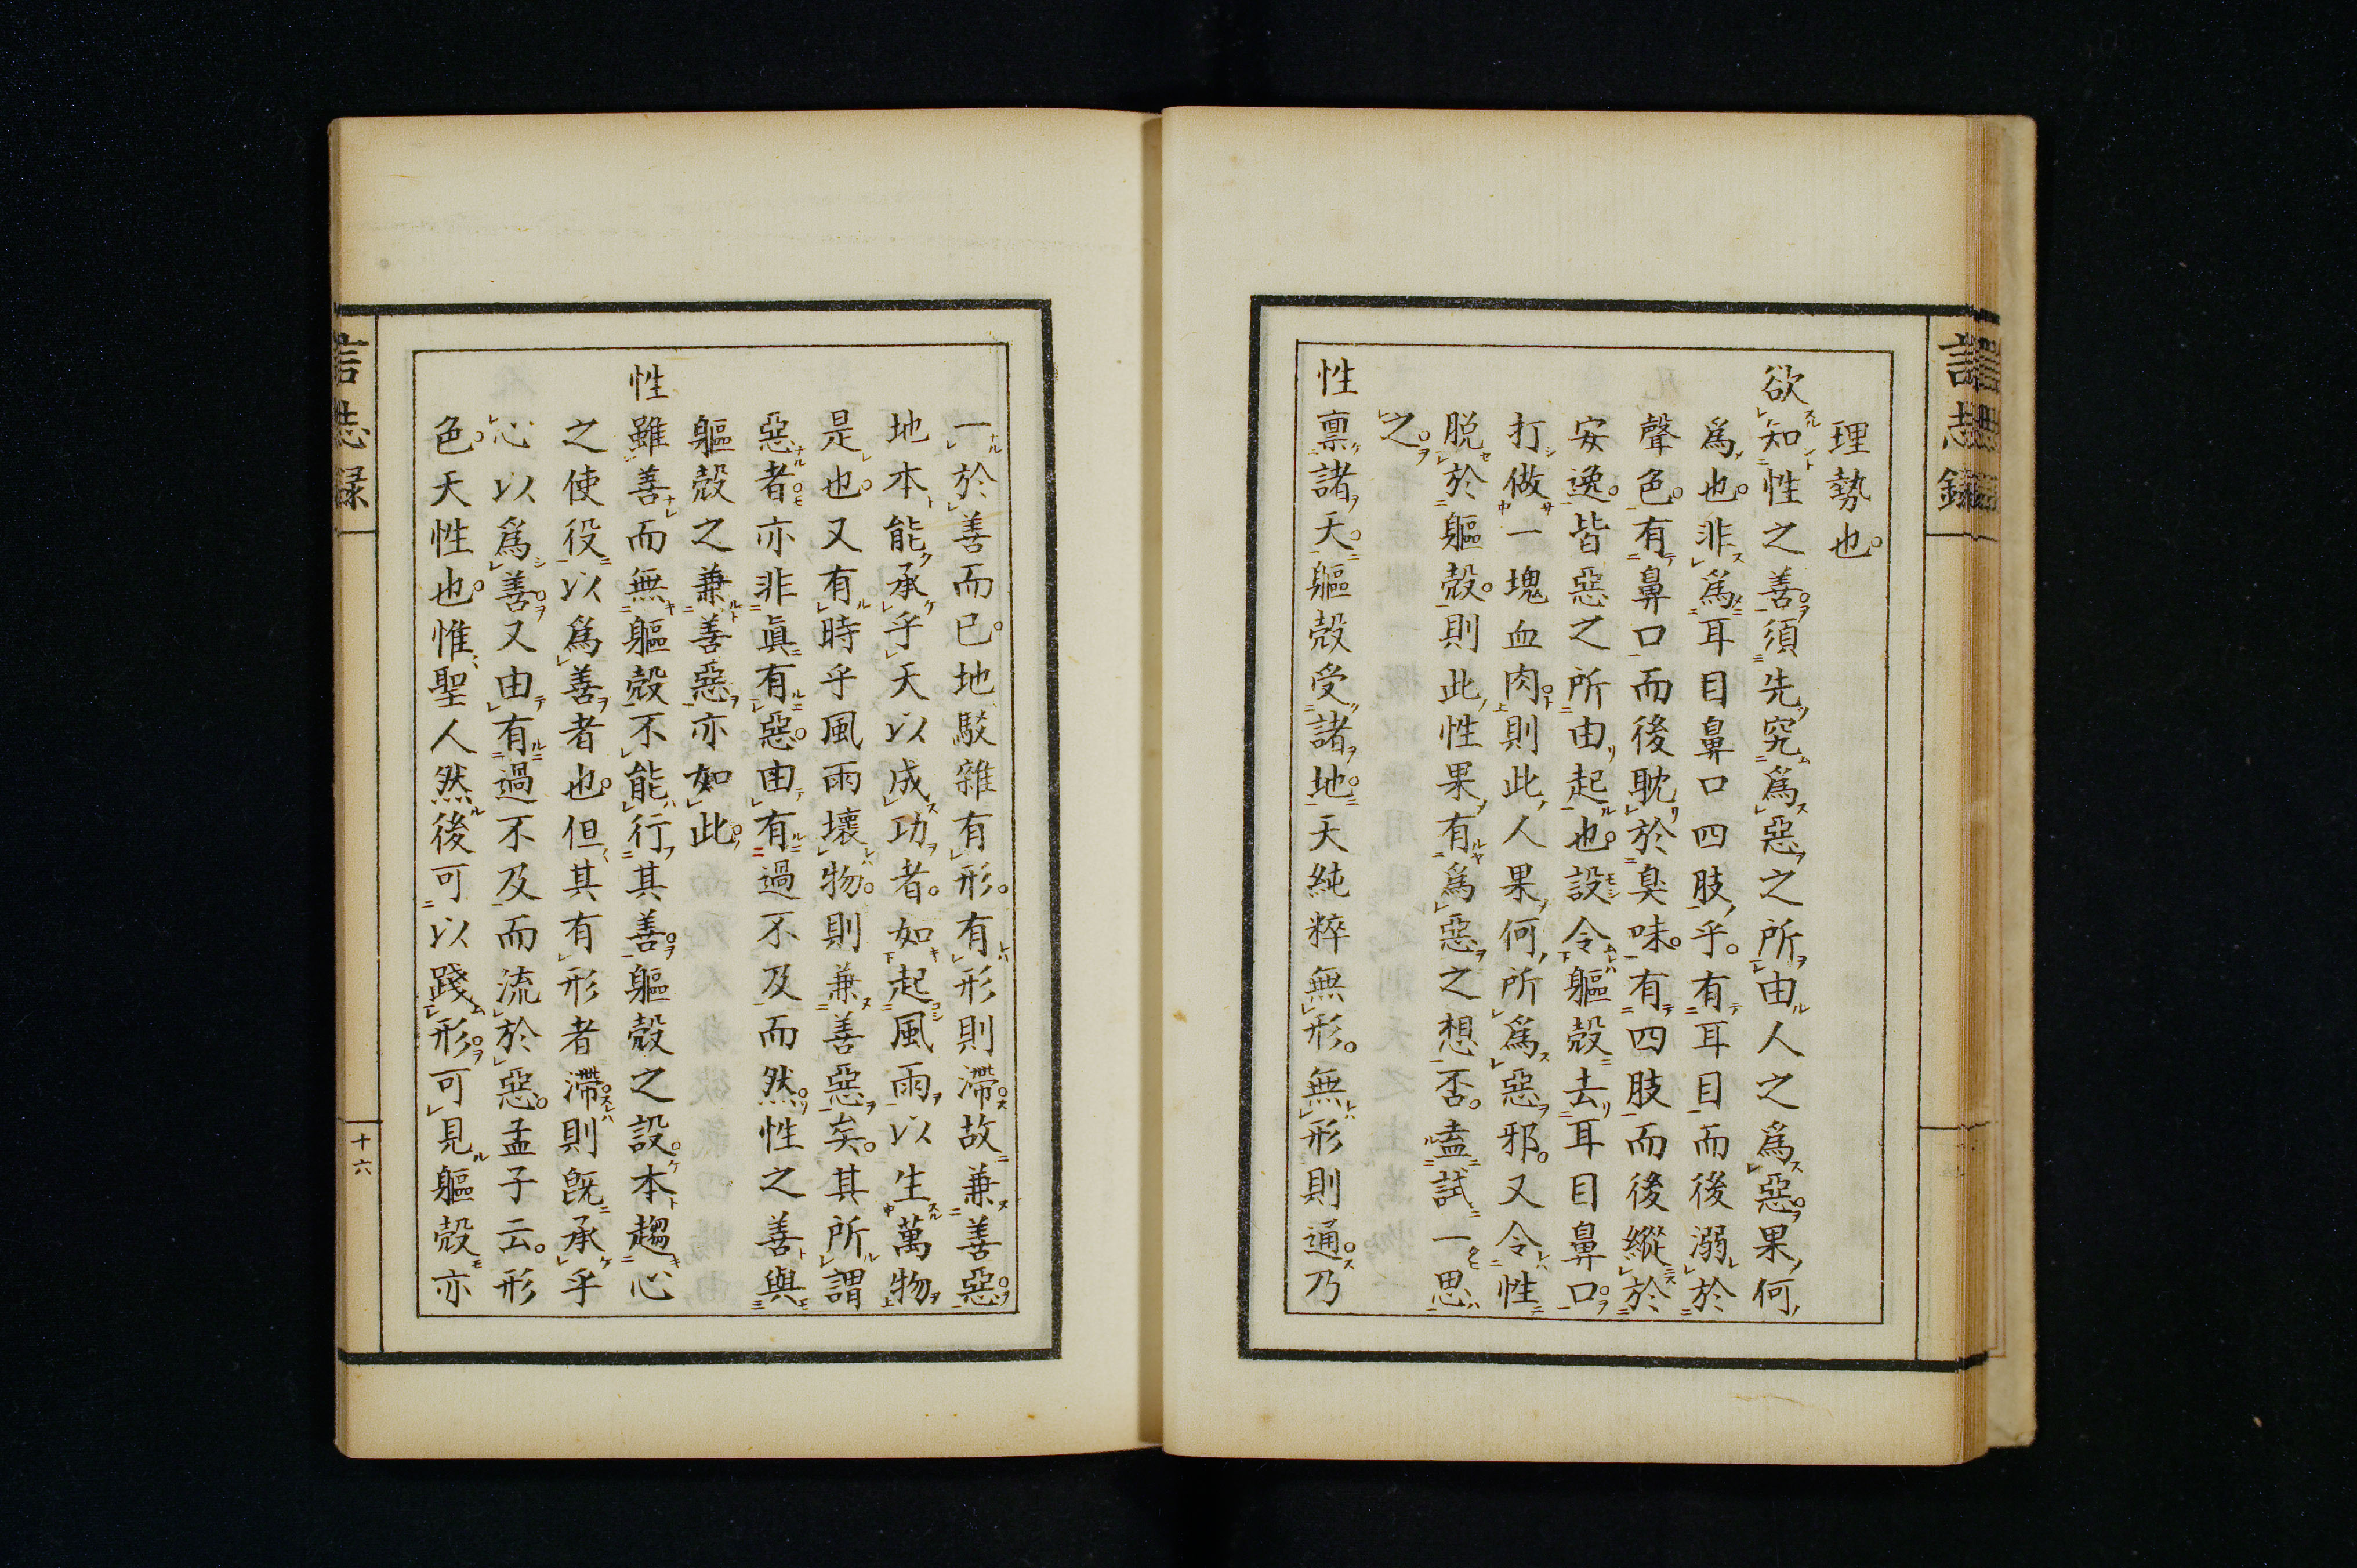 言志録
理勢也。
欲知性之善。須先究爲惡之所由。人之爲惡。果何
爲也。非爲耳目鼻口四肢乎。有耳目而後溺於
聲色。有鼻口而後耽於臭味。有四肢而後縱於
安逸。皆惡之所由起也。設令軀殼去耳目鼻口。
打做一塊血肉。則此人果何所爲惡邪。又令性
脱於軀殼。則此性果有爲惡之想否。盍試一思
之。
性稟諸天。軀殼受諸地。天純粹無形。無形則通。乃
一於善而已。地駁雜有形。有形則滯。故兼善惡。
地本能承乎天以成功者。如起風雨以生萬物
是也。又有時乎風雨壞物。則兼善惡矣。其所謂
惡者。亦非眞有惡。由有過不及而然。性之善與
軀殼之兼善惡亦如此。
性雖善而無軀殼不能行其善。軀殼之設。本趨心
之使役以爲善者也。但其有形者滯。則既承乎
心以爲善。又由有過不及而流於惡。孟子云。形
色天性也。惟聖人然後可以踐形。可見軀殼亦
言志録
十六